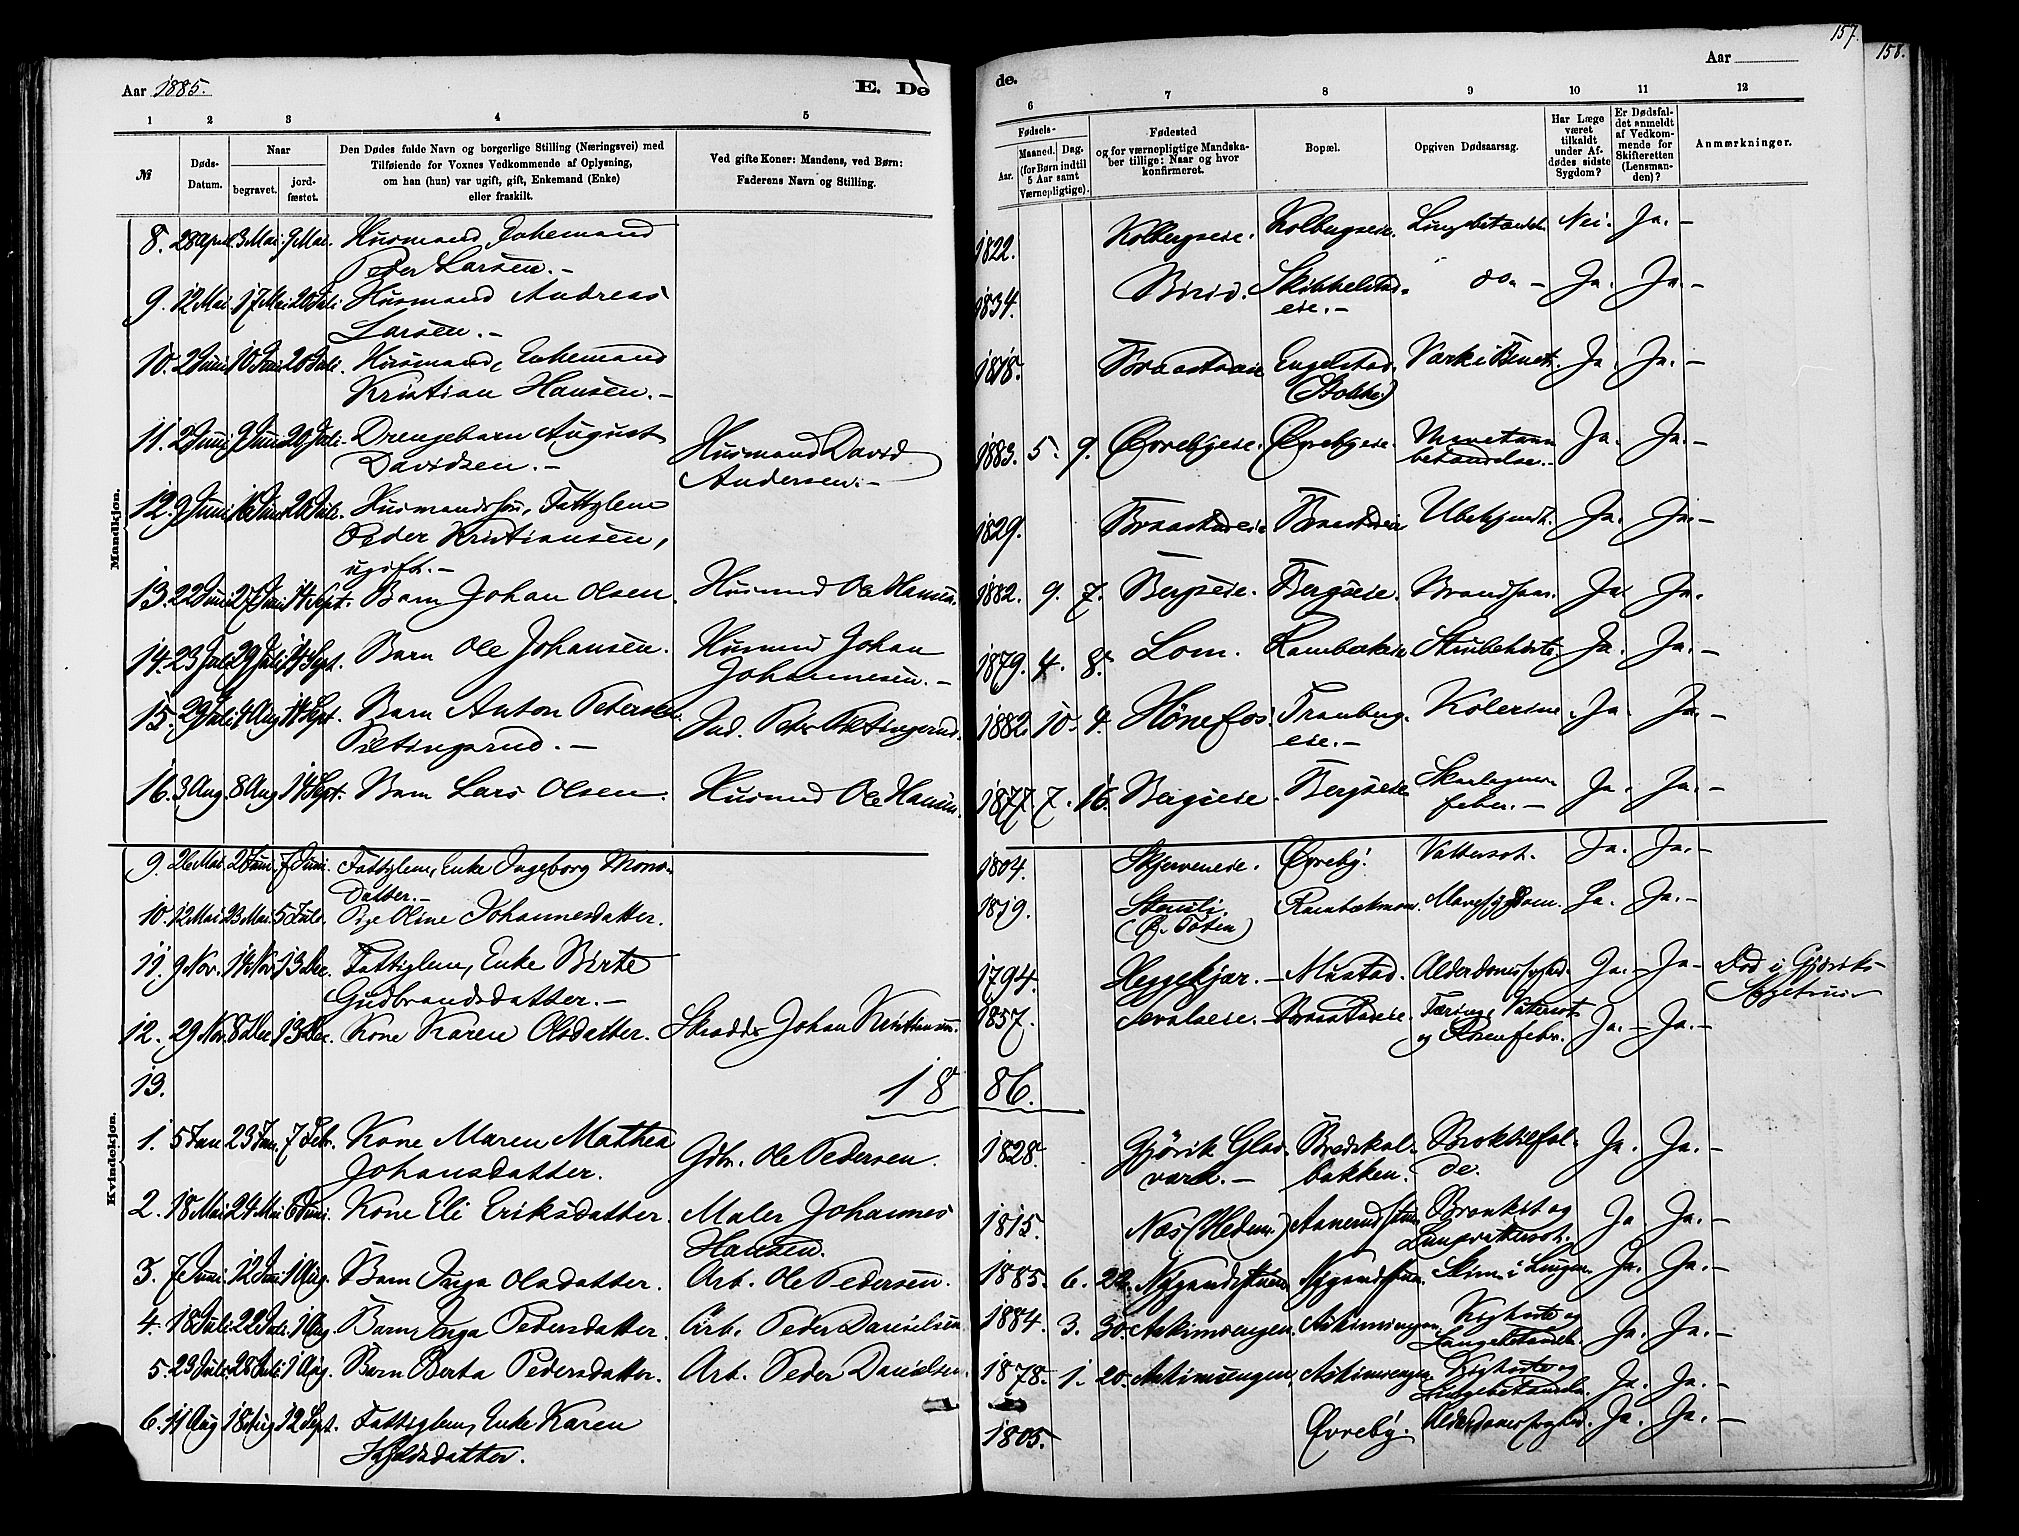 157.
158.
Aar 1885.
E. Dø
de.
Aar
1 2 3 4 5 6 7 8 9 10 11 12
№
Døds-Datum.
Naar
begravet.
jord-fæstet.
Den Dødes fulde Navn og borgerlige Stilling (Næringsvei) med
Tilføiende for Voxnes Vedkommende af Oplysning,
om han (hun) var ugift, gift, Enkemand (Enke)
eller fraskilt.
Ved gifte Koner: Mandens, ved Børn:
Faderens Navn og Stilling.
Fødsels-
Aar.
Maaned. Dag.
(for Børn indtil
5 Aar samt
Værnepligtige).
Fødested
og for værnepligtige Mandska-
ber tillige: Naar og hvor
konfirmeret.
Bopæl.
Opgiven Dødsaarsag.
Har Læge
været
tilkaldt
under Af-
dødes sidste
Sygdom?
Er Dødsfal-
det anmeldt
af Vedkom-
mende for
Skifteretten
(Lensman-
den)?
Anmærkninger.
Mandkjøn.
8. 28 April 3 Mai 9 Mai. Husmand, Enkemand 1822. Kolbergseie. Kolbergseie. Lungebetændelse Nei. Ja. –
Peder Larsen. –
9. 12 Mai 17 Mai 20 Juli Husmand Andreas 1834. Birid. Skibbelstad- do. – Ja. Ja. –
Larsen. – eie. –
10. 2 Juni 10 Juni 20 Juli. Husmand, Enkemand 1818. Braastadeie Engelstad. Værk i Benet. Ja. Ja. –
Kristian Hansen. –
11. 2 Juni 9 Juni 20 Juli. Drengebarn August Husmand David 1883. 5. 9. Øvrebyeie. Øvrebyeie. Ja. Ja. –
Davidsen. – Andersen. – betændelse. –
12. 9 Juni 16 Juni 20 Juli. Husmandssøn, Fattiglem 1829. Braastadeie Braastadeie Ubekjendt. Ja. Ja. –
Peder Kristiansen,
ugift. –
13. 22 Juni 27 Juni 14 Sept. Barn Johan Olsen. Husmd Ole Hansen. 1882. 9. 7. Bergseie. Bergseie. Brandsaar. Ja. Ja.
14. 23 Juli 29 Juli 14 Sept. Barn Ole Johansen. Husmd Johan 1879. 4. 8. Lom. Rambækeie Strubehoste. Ja. Ja. –
Johannesen. –
15. 29 Juli 4 Aug 14 Sept. Barn Anton Pedersen Ind. Peder Piltingsrud. 1882. 10. 4. Hønefos. Tranberg- Kolerine. Ja. Ja. –
Piltingsrud. – eie. –
16. 3 Aug. 8 Aug 14 Sept. Barn Lars Olsen. Husmd Ole Hansen. 1877. 7. 16. Bergseie. Bergseie Skarlagens- Ja. Ja. –
feber. –
Kvindekjøn.
9. 26 Mai. 2 Juni. 7 Juni. Fattiglem, Enke Ingeborg Mons- 1804. Skjerveneie. Øvreby. Vattersot. Ja. Ja. –
Datter. –
10. 12 Mai 23 Mai. 5 Juli. Pige Oline Johannesdatter. 1819. Stensli. Rambækmoen. Mavesygdom. Ja. Ja. –
(Ø. Toten)
11. 9 Nov. 14 Nov. 13 Dec. Fattiglem, Enke Birte 1794. Heggekjær. – Mustad. Alderdomssvaghed. Ja. – Ja – Død i Gjøviks
Gudbrandsdatter. –
12. 29 Nov. 8 Dec. 13 Dec. Kone Karen Olsdatter. Skrædder Johan Kristiansen. 1857. Sevalseie. – Braastadeie. Tæring, Vattersot Ja. – Ja. –
og Rosenfeber.
13.
1886.
1. 5 Jan 23 Jan. 7 Febr. Kone Maren Mathea Gbr. Ole Pedersen. 1828. Gjøvik Glas- Bredskal- Broktilfæl- Ja. Ja. –
Johansdatter. værk. – bakken. de.
2. 18 Mai 24 Mai 6 Juni. Kone Eli Eriksdatter. Maler Johannes 1815. Næs (Hedem.) Aanerudstuen Bronkit og Ja Ja. –
Hansen.
3. 7 Juni. 12 Juni 1 Aug. Barn Inga Olsdatter. Arb. Ole Pedersen. 1885. 6. 22. Nygaardstuen Nygaardstuen. i Lungen. Ja. Ja. –
4. 18 Juli 22 Juli. 1 Aug. Barn Inga Pedersdatter. Arb. Peder Danielsen 1884. 3. 30. Askimsengen. Askimsengen. Kighoste og Ja. Ja. –
Lungebetændelse.
5. 23 Juli. 28 Juli 1 Aug. Barn Berta Pedersdatter. Arb. Peder Danielsen. 1878. 1. 20. Askimsengen. Askimsengen. Kighoste og Ja. Ja. –
Lungebetændelse.
6. 11 Aug 18 Aug 12 Sept. Fattiglem, Enke Karen 1805. Øvreby. Alderdomssvaghed. Ja. Ja. –